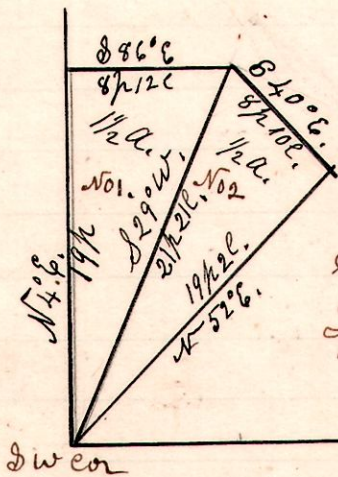 S 86°E
8p12l
S 40°E.
8p10l.
1½ a.
½ a.
No1.
No2
S 29°W.
21p21l.
N 4°E.
19p
19p2l.
N 52°E.
SW cor